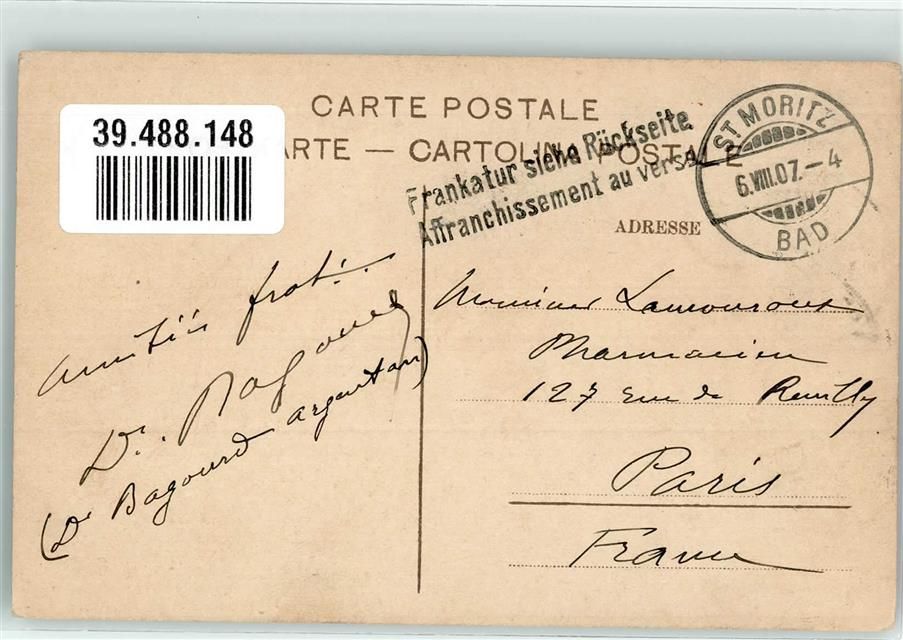 CARTE POSTALE
39.488.148
ARTE — CARTOLINA POSTALE
Frankatur siehe Rückseite
Affranchissement au verso
ST MORITZ
6.VIII.07.–4
BAD
ADRESSE
Amitiés frat...
Dr. Bagourd
(Dr Bagourd Argentan)
Monsieur Lamouroux
Pharmacien
127 rue de Reuilly
Paris
France